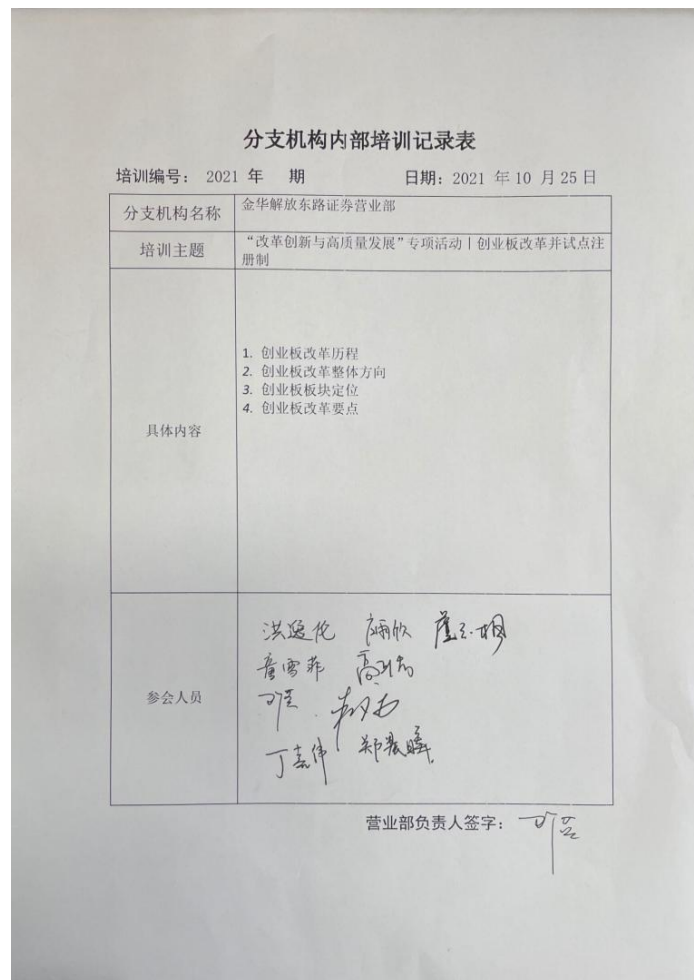 分支机构内部培训记录表
培训编号： 2021 年 期 日期：2021 年 10 月 25 日
分支机构名称 金华解放东路证券营业部
培训主题 “改革创新与高质量发展”专项活动丨创业板改革并试点注
册制
具体内容
1. 创业板改革历程
2. 创业板改革整体方向
3. 创业板板块定位
4. 创业板改革要点
参会人员
洪逸伦
童雪菲
丁嘉伟 郑晨曦
营业部负责人签字：